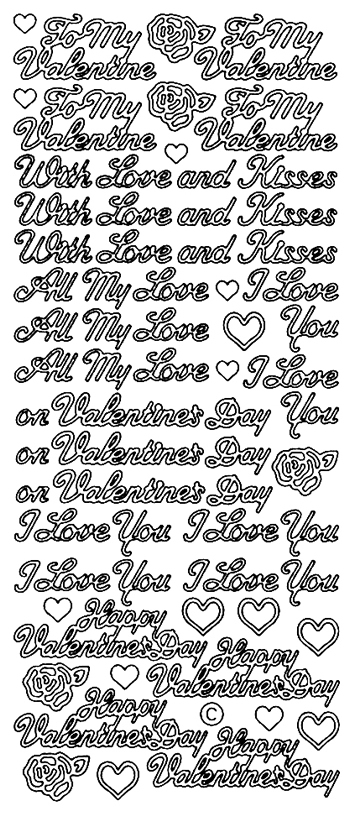 To My To My
Valentine Valentine
To My To My
Valentine Valentine
With Love and Kisses
With Love and Kisses
With Love and Kisses
All My Love I Love
All My Love You
All My Love I Love
on Valentine's Day You
on Valentine's Day
on Valentine's Day
I Love You I Love You
I Love You I Love You
Happy
Valentines Day
Happy
Valentines Day
Happy
Valentines Day
©
Happy
Valentines Day